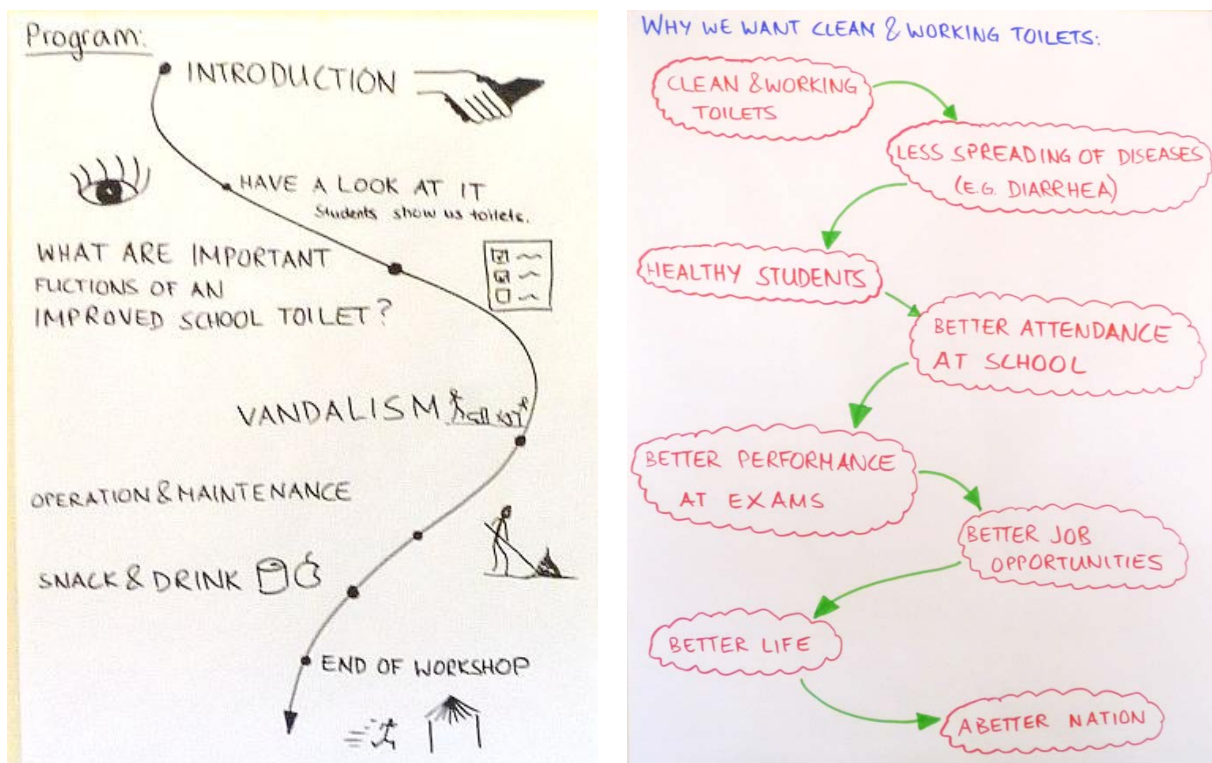 Program:
INTRODUCTION
HAVE A LOOK AT IT
Students show us toilets.
WHAT ARE IMPORTANT
FUCTIONS OF AN
IMPROVED SCHOOL TOILET?
VANDALISM
OPERATION & MAINTENANCE
SNACK & DRINK
END OF WORKSHOP
WHY WE WANT CLEAN & WORKING TOILETS:
CLEAN & WORKING
TOILETS
LESS SPREADING OF DISEASES
(E.G. DIARRHEA)
HEALTHY STUDENTS
BETTER ATTENDANCE
AT SCHOOL
BETTER PERFORMANCE
AT EXAMS
BETTER JOB
OPPORTUNITIES
BETTER LIFE
A BETTER NATION